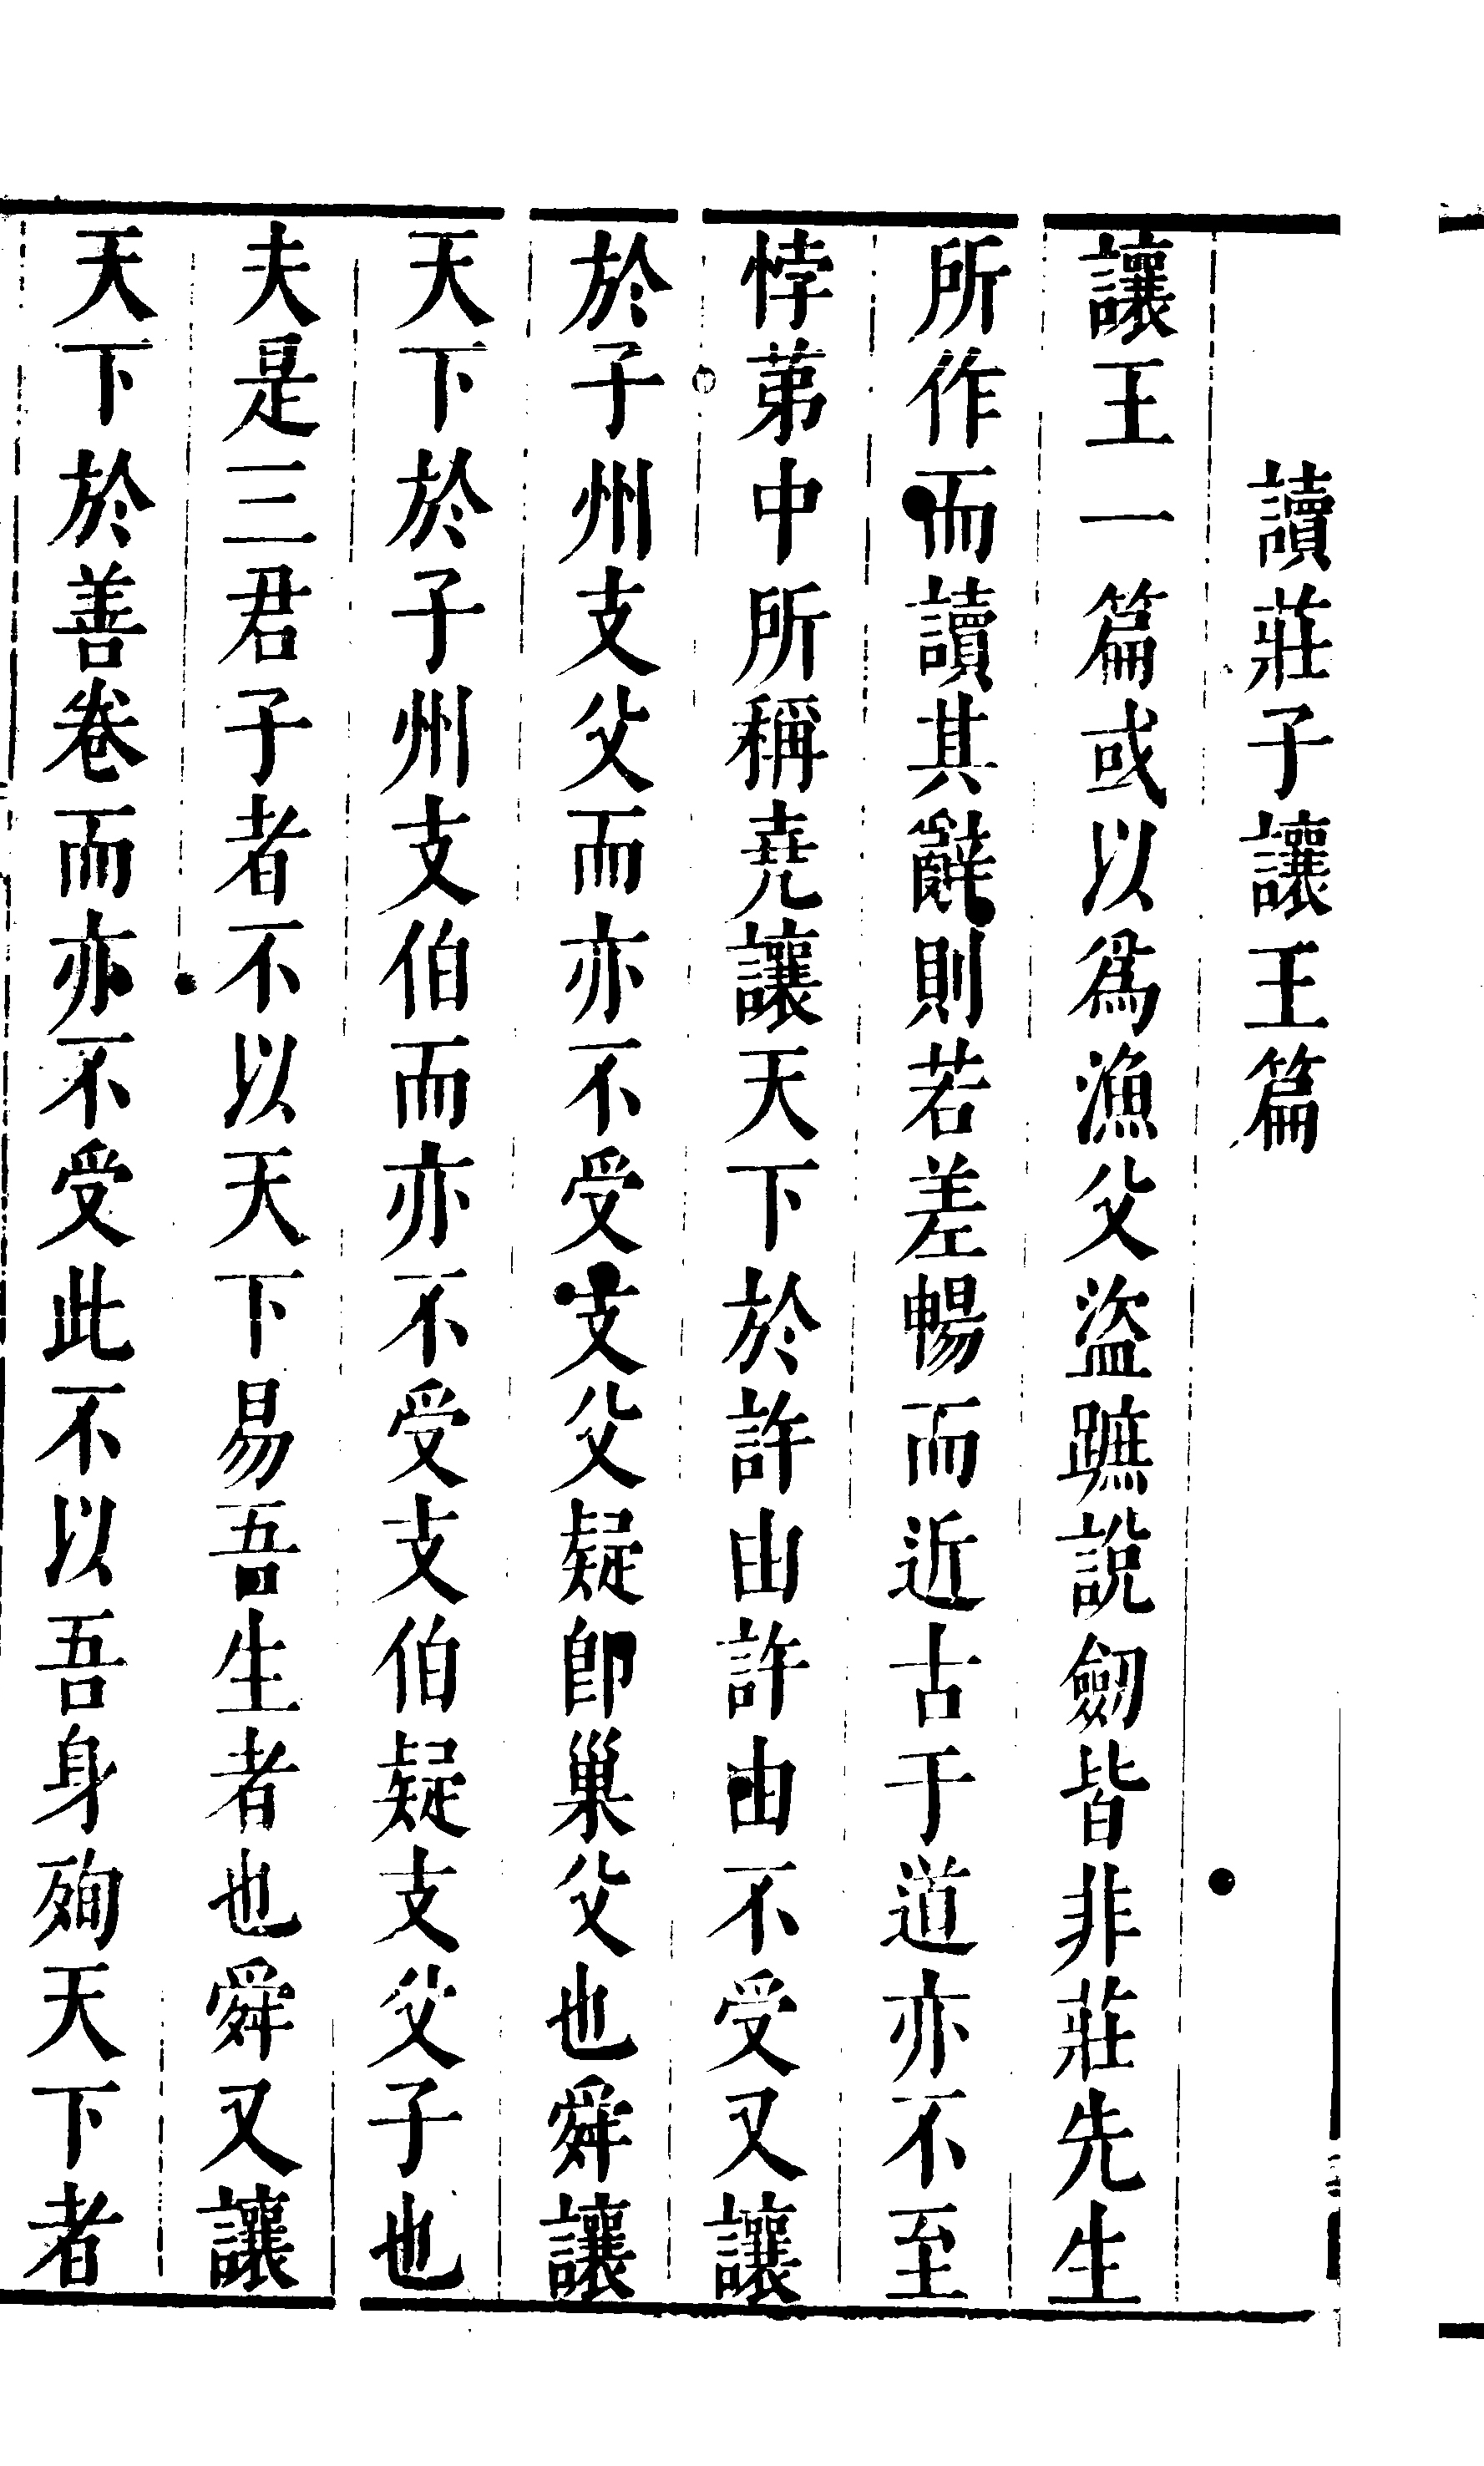 讀莊子讓王篇
讓王一篇或以爲漁父盜蹠說劒皆非莊先生
所作而讀其辭則若差暢而近古于道亦不至
悖苐中所稱堯讓天下於許由許由不受又讓
於子州支父而亦不受支父疑卽巢父也舜讓
天下於子州支伯而亦不受支伯疑支父子也
夫是三君子者不以天下易吾生者也舜又讓
天下於善卷而亦不受此不以吾身殉天下者